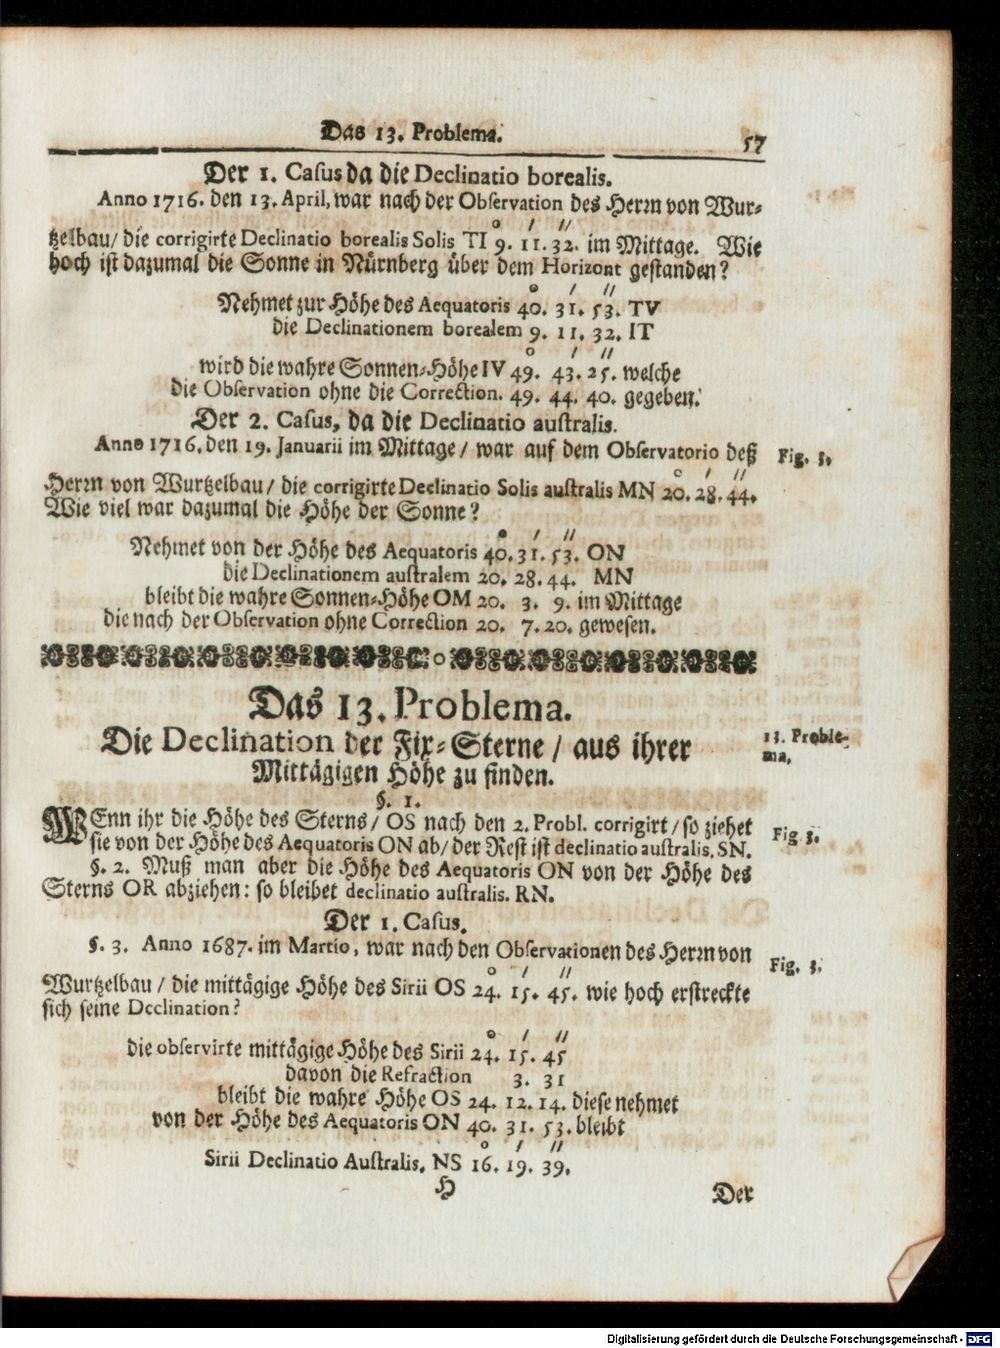 Das 13. Problema.
57
Der 1. Casus da die Declinatio borealis.
Anno 1716. den 13. April, war nach der Observation des Herrn von Wur-
° ′ ″
tzelbau/ die corrigirte Declinatio borealis Solis TI 9. 11. 32. im Mittage. Wie
hoch ist dazumal die Sonne in Nürnberg über dem Horizont gestanden?
° ′ ″
Nehmet zur Höhe des Aequatoris 40. 31. 53. TV
die Declinationem borealem 9. 11. 32. IT
° ′ ″
wird die wahre Sonnen-Höhe IV 49. 43. 25. welche
die Observation ohne die Correction. 49. 44. 40. gegeben.
Der 2. Casus, da die Declinatio australis.
Anno 1716. den 19. Januarii im Mittage/ war auf dem Observatorio deß
Fig. 3.
° ′ ″
Herrn von Wurtzelbau/ die corrigirte Declinatio Solis australis MN 20. 28. 44.
Wie viel war dazumal die Höhe der Sonne?
° ′ ″
Nehmet von der Höhe des Aequatoris 40. 31. 53. ON
die Declinationem australem 20. 28. 44. MN
bleibt die wahre Sonnen-Höhe OM 20. 3. 9. im Mittage
die nach der Observation ohne Correction 20. 7. 20. gewesen.
Das 13. Problema.
Die Declination der Fix-Sterne/ aus ihrer
Mittägigen Höhe zu finden.
13. Proble-
ma.
§. 1.
WEnn ihr die Höhe des Sterns/ OS nach den 2. Probl. corrigirt/ so ziehet
Fig 3.
sie von der Höhe des Aequatoris ON ab/ der Rest ist declinatio australis. SN.
§. 2. Muß man aber die Höhe des Aequatoris ON von der Höhe des
Sterns OR abziehen: so bleibet declinatio australis. RN.
Der 1. Casus.
§. 3. Anno 1687. im Martio, war nach den Observationen des Herrn von
Fig. 3.
° ′ ″
Wurtzelbau/ die mittägige Höhe des Sirii OS 24. 15. 45. wie hoch erstreckte
sich seine Declination?
° ′ ″
die observirte mittägige Höhe des Sirii 24. 15. 45
davon die Refraction 3. 31
bleibt die wahre Höhe OS 24. 12. 14. diese nehmet
von der Höhe des Aequatoris ON 40. 31. 53. bleibt
° ′ ″
Sirii Declinatio Australis. NS 16. 19. 39.
H
Der
Digitalisierung gefördert durch die Deutsche Forschungsgemeinschaft - DFG